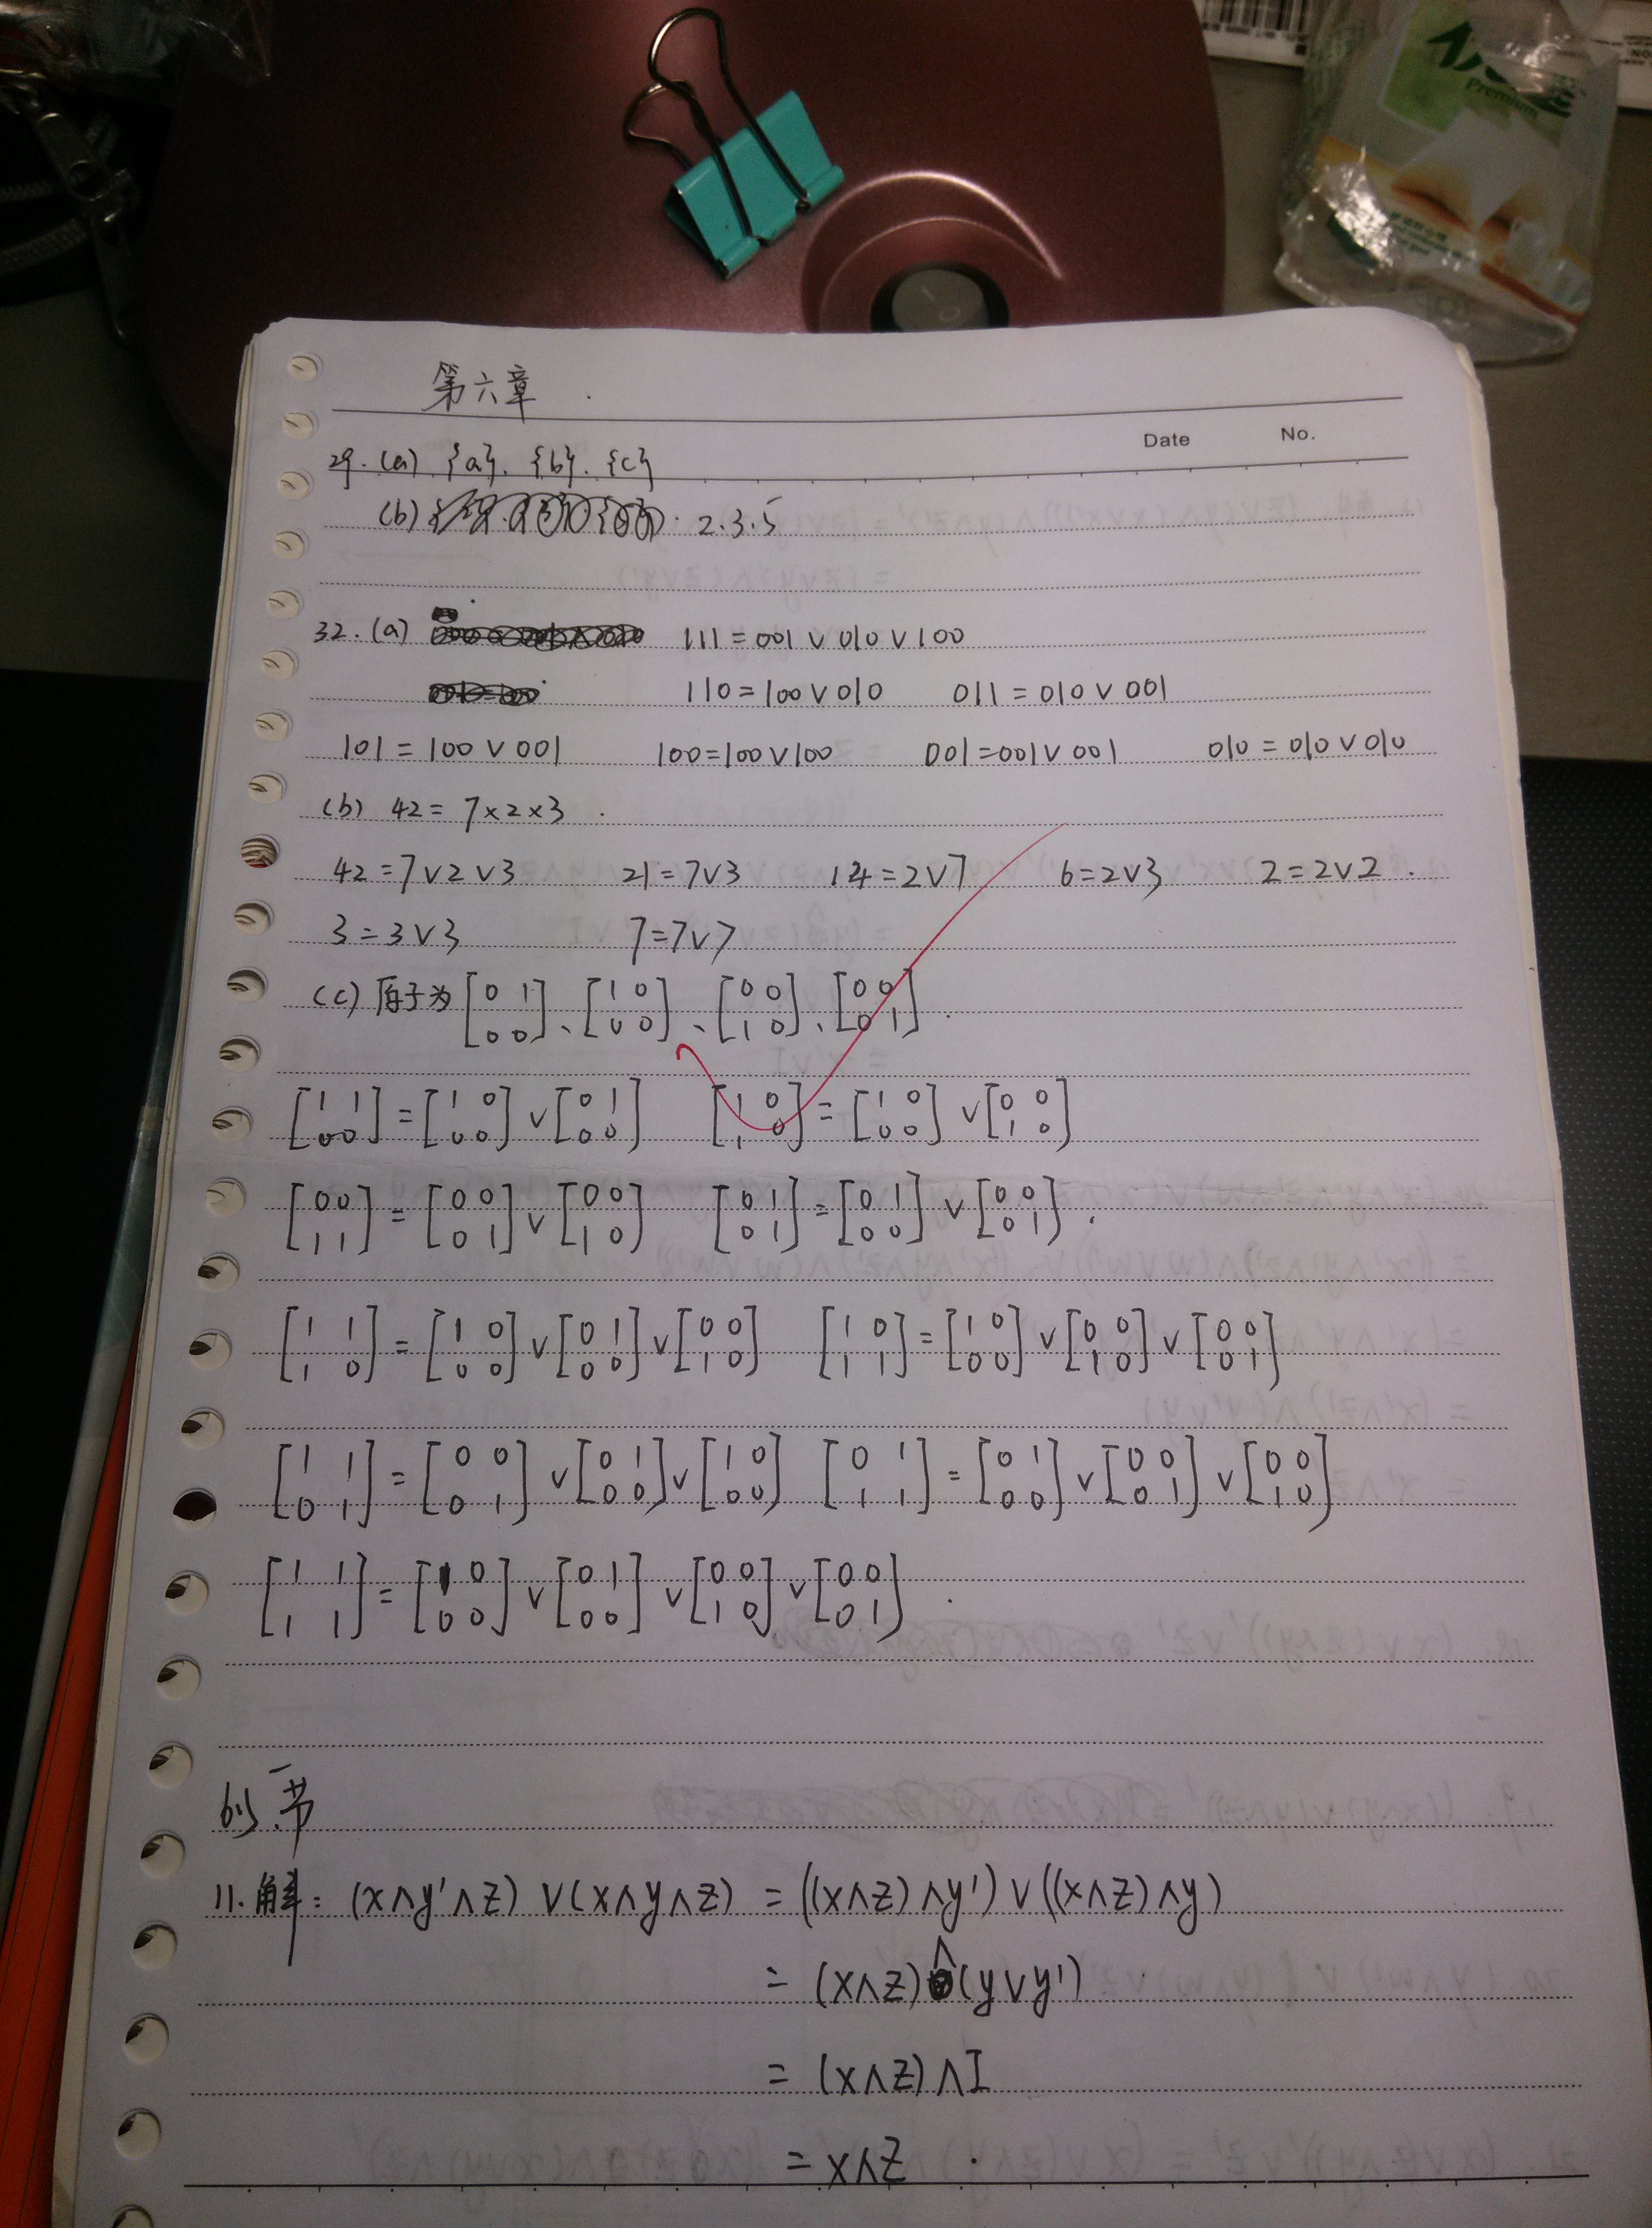 Premium
第六章
Date No.
29. (a) {a}. {b}. {c}
(b) 2.3.5
32. (a) 111 = 001 ∨ 010 ∨ 100
110 = 100 ∨ 010 011 = 010 ∨ 001
101 = 100 ∨ 001 100 = 100 ∨ 100 001 = 001 ∨ 001 010 = 010 ∨ 010
(b) 42 = 7×2×3 .
42 = 7∨2∨3 21 = 7∨3 14 = 2∨7 6 = 2∨3 2 = 2∨2 .
3 = 3∨3 7 = 7∨7
(c) 原子为 [0 1; 0 0]、[1 0; 0 0]、[0 0; 1 0]、[0 0; 0 1] .
[1 1; 0 0] = [1 0; 0 0] ∨ [0 1; 0 0] [1 0; 1 0] = [1 0; 0 0] ∨ [0 0; 1 0]
[0 0; 1 1] = [0 0; 0 1] ∨ [0 0; 1 0] [0 1; 0 1] = [0 1; 0 0] ∨ [0 0; 0 1] .
[1 1; 1 0] = [1 0; 0 0] ∨ [0 1; 0 0] ∨ [0 0; 1 0] [1 0; 1 1] = [1 0; 0 0] ∨ [0 0; 1 0] ∨ [0 0; 0 1]
[1 1; 0 1] = [0 0; 0 1] ∨ [0 1; 0 0] ∨ [1 0; 0 0] [0 1; 1 1] = [0 1; 0 0] ∨ [0 0; 0 1] ∨ [0 0; 1 0]
[1 1; 1 1] = [1 0; 0 0] ∨ [0 1; 0 0] ∨ [0 0; 1 0] ∨ [0 0; 0 1] .
节
11. 解: (x∧y'∧z) ∨ (x∧y∧z) = ((x∧z)∧y') ∨ ((x∧z)∧y)
= (x∧z)∧(y∨y')
= (x∧z)∧I
= x∧z .